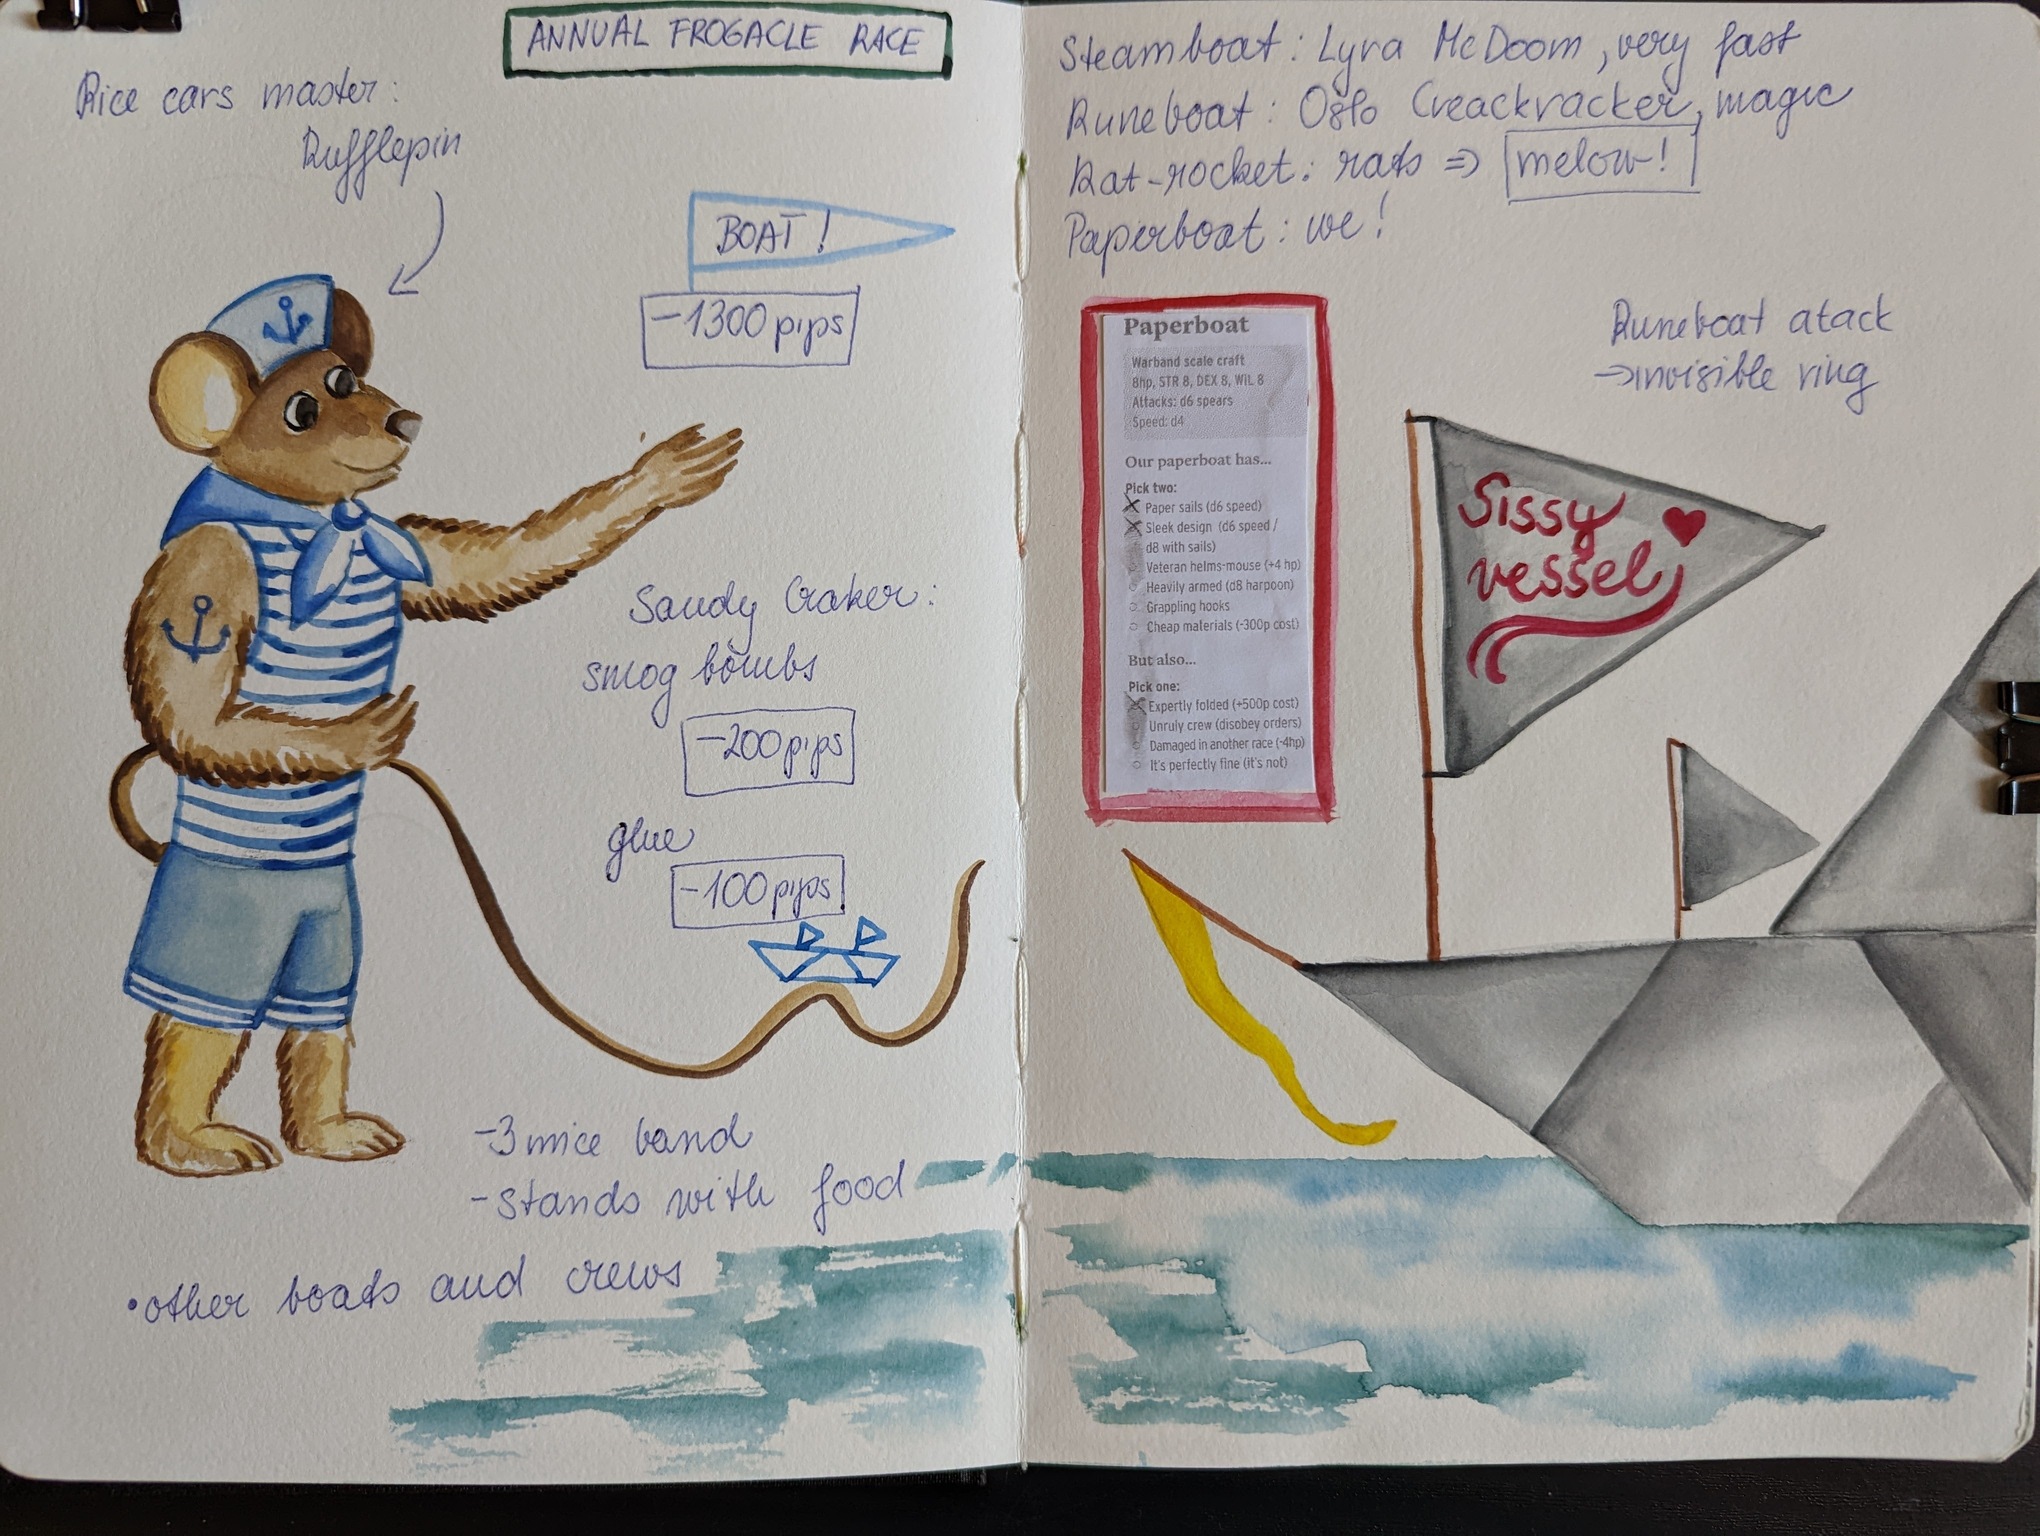 ANNUAL FROGACLE RACE
Rice cars master:
Rufflepin
BOAT!
-1300 pips
Sandy Craker:
smog bombs
-200 pips
glue
-100 pips
-3 mice band
-stands with food
•other boats and crews
Steamboat: Lyra McDoom, very fast
Runeboat: Oslo Creackracker, magic
Rat-rocket: rats => melow!
Paperboat: we!
Runeboat atack
->invisible ring
Paperboat
Warband scale craft
8hp, STR 8, DEX 8, WIL 8
Attacks: d6 spears
Speed: d4
Our paperboat has...
Pick two:
Paper sails (d6 speed)
Sleek design (d6 speed /
d8 with sails)
Veteran helms-mouse (+4 hp)
Heavily armed (d8 harpoon)
Grappling hooks
Cheap materials (-300p cost)
But also...
Pick one:
Expertly folded (+500p cost)
Unruly crew (disobey orders)
Damaged in another race (-4hp)
It's perfectly fine (it's not)
Sissy
vessel